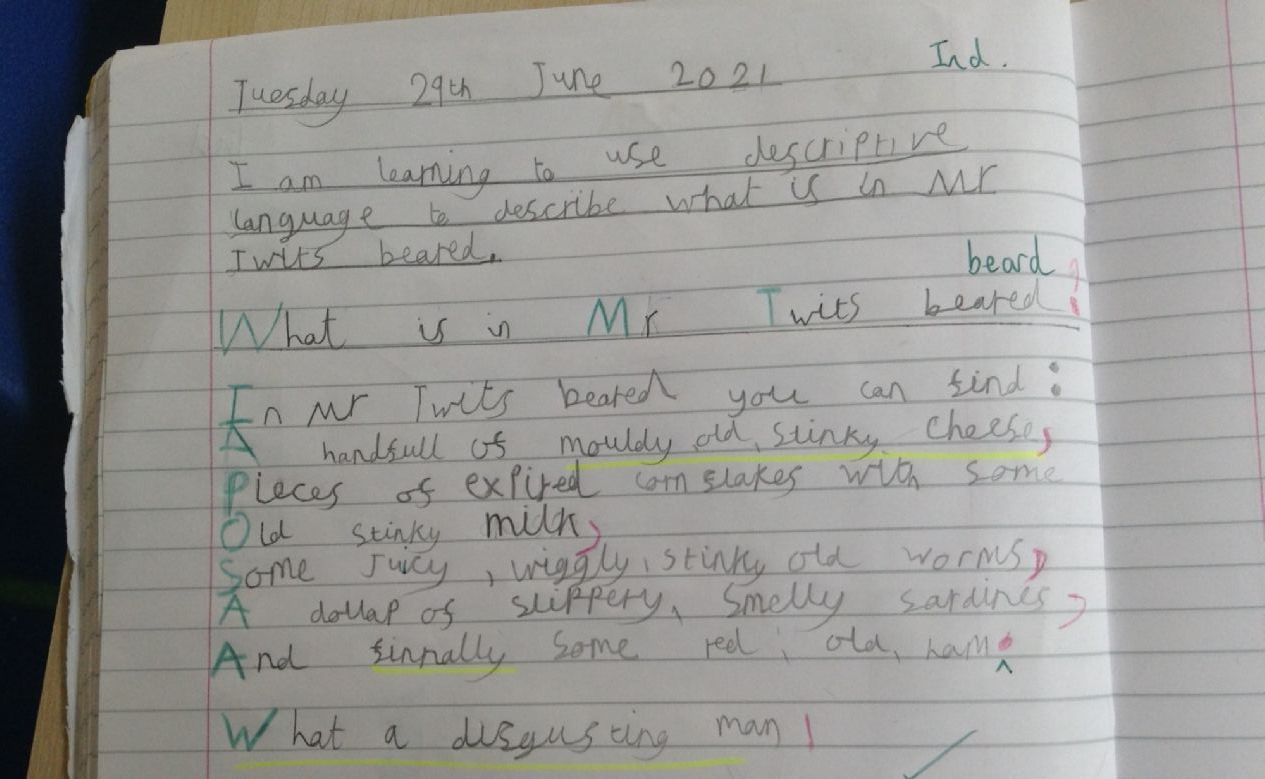 Ind.
Tuesday 29th June 2021
I am learning to use descriptive
language to describe what is in Mr
Twits beared.
beard
What is in Mr Twits beared:
In Mr Twits beared you can find:
A handfull of mouldy old, stinky cheese,
Pieces of expired cornflakes with some
Old stinky milk,
Some Juicy, wiggly, stinky old worms,
A dollap of slippery, smelly sardines,
And finnally some red, old, ham.
What a disgusting man!